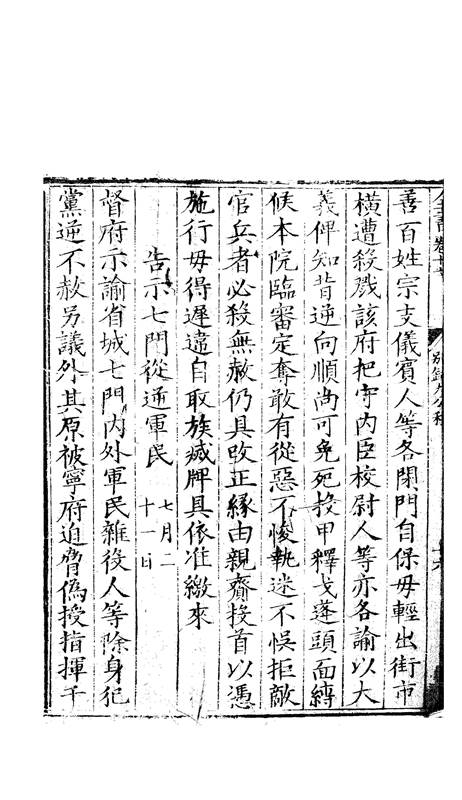 全書卷十七
善百姓宗支儀賓人等各閉門自保毋輕出街市
橫遭殺戮該府把守內臣校尉人等亦各諭以大
義俾知背逆向順尚可免死投甲釋戈蓬頭面縛
候本院臨審定奪敢有從惡不悛執迷不悞拒敵
官兵者必殺無赦仍具改正緣由親齎投首以憑
施行毋得遲違自取族滅牌具依准繳來
告示七門從逆軍民 七月二
十一日
督府示諭省城七門內外軍民雜役人等除身犯
黨逆不赦另議外其原被寧府迫脅偽授指揮千